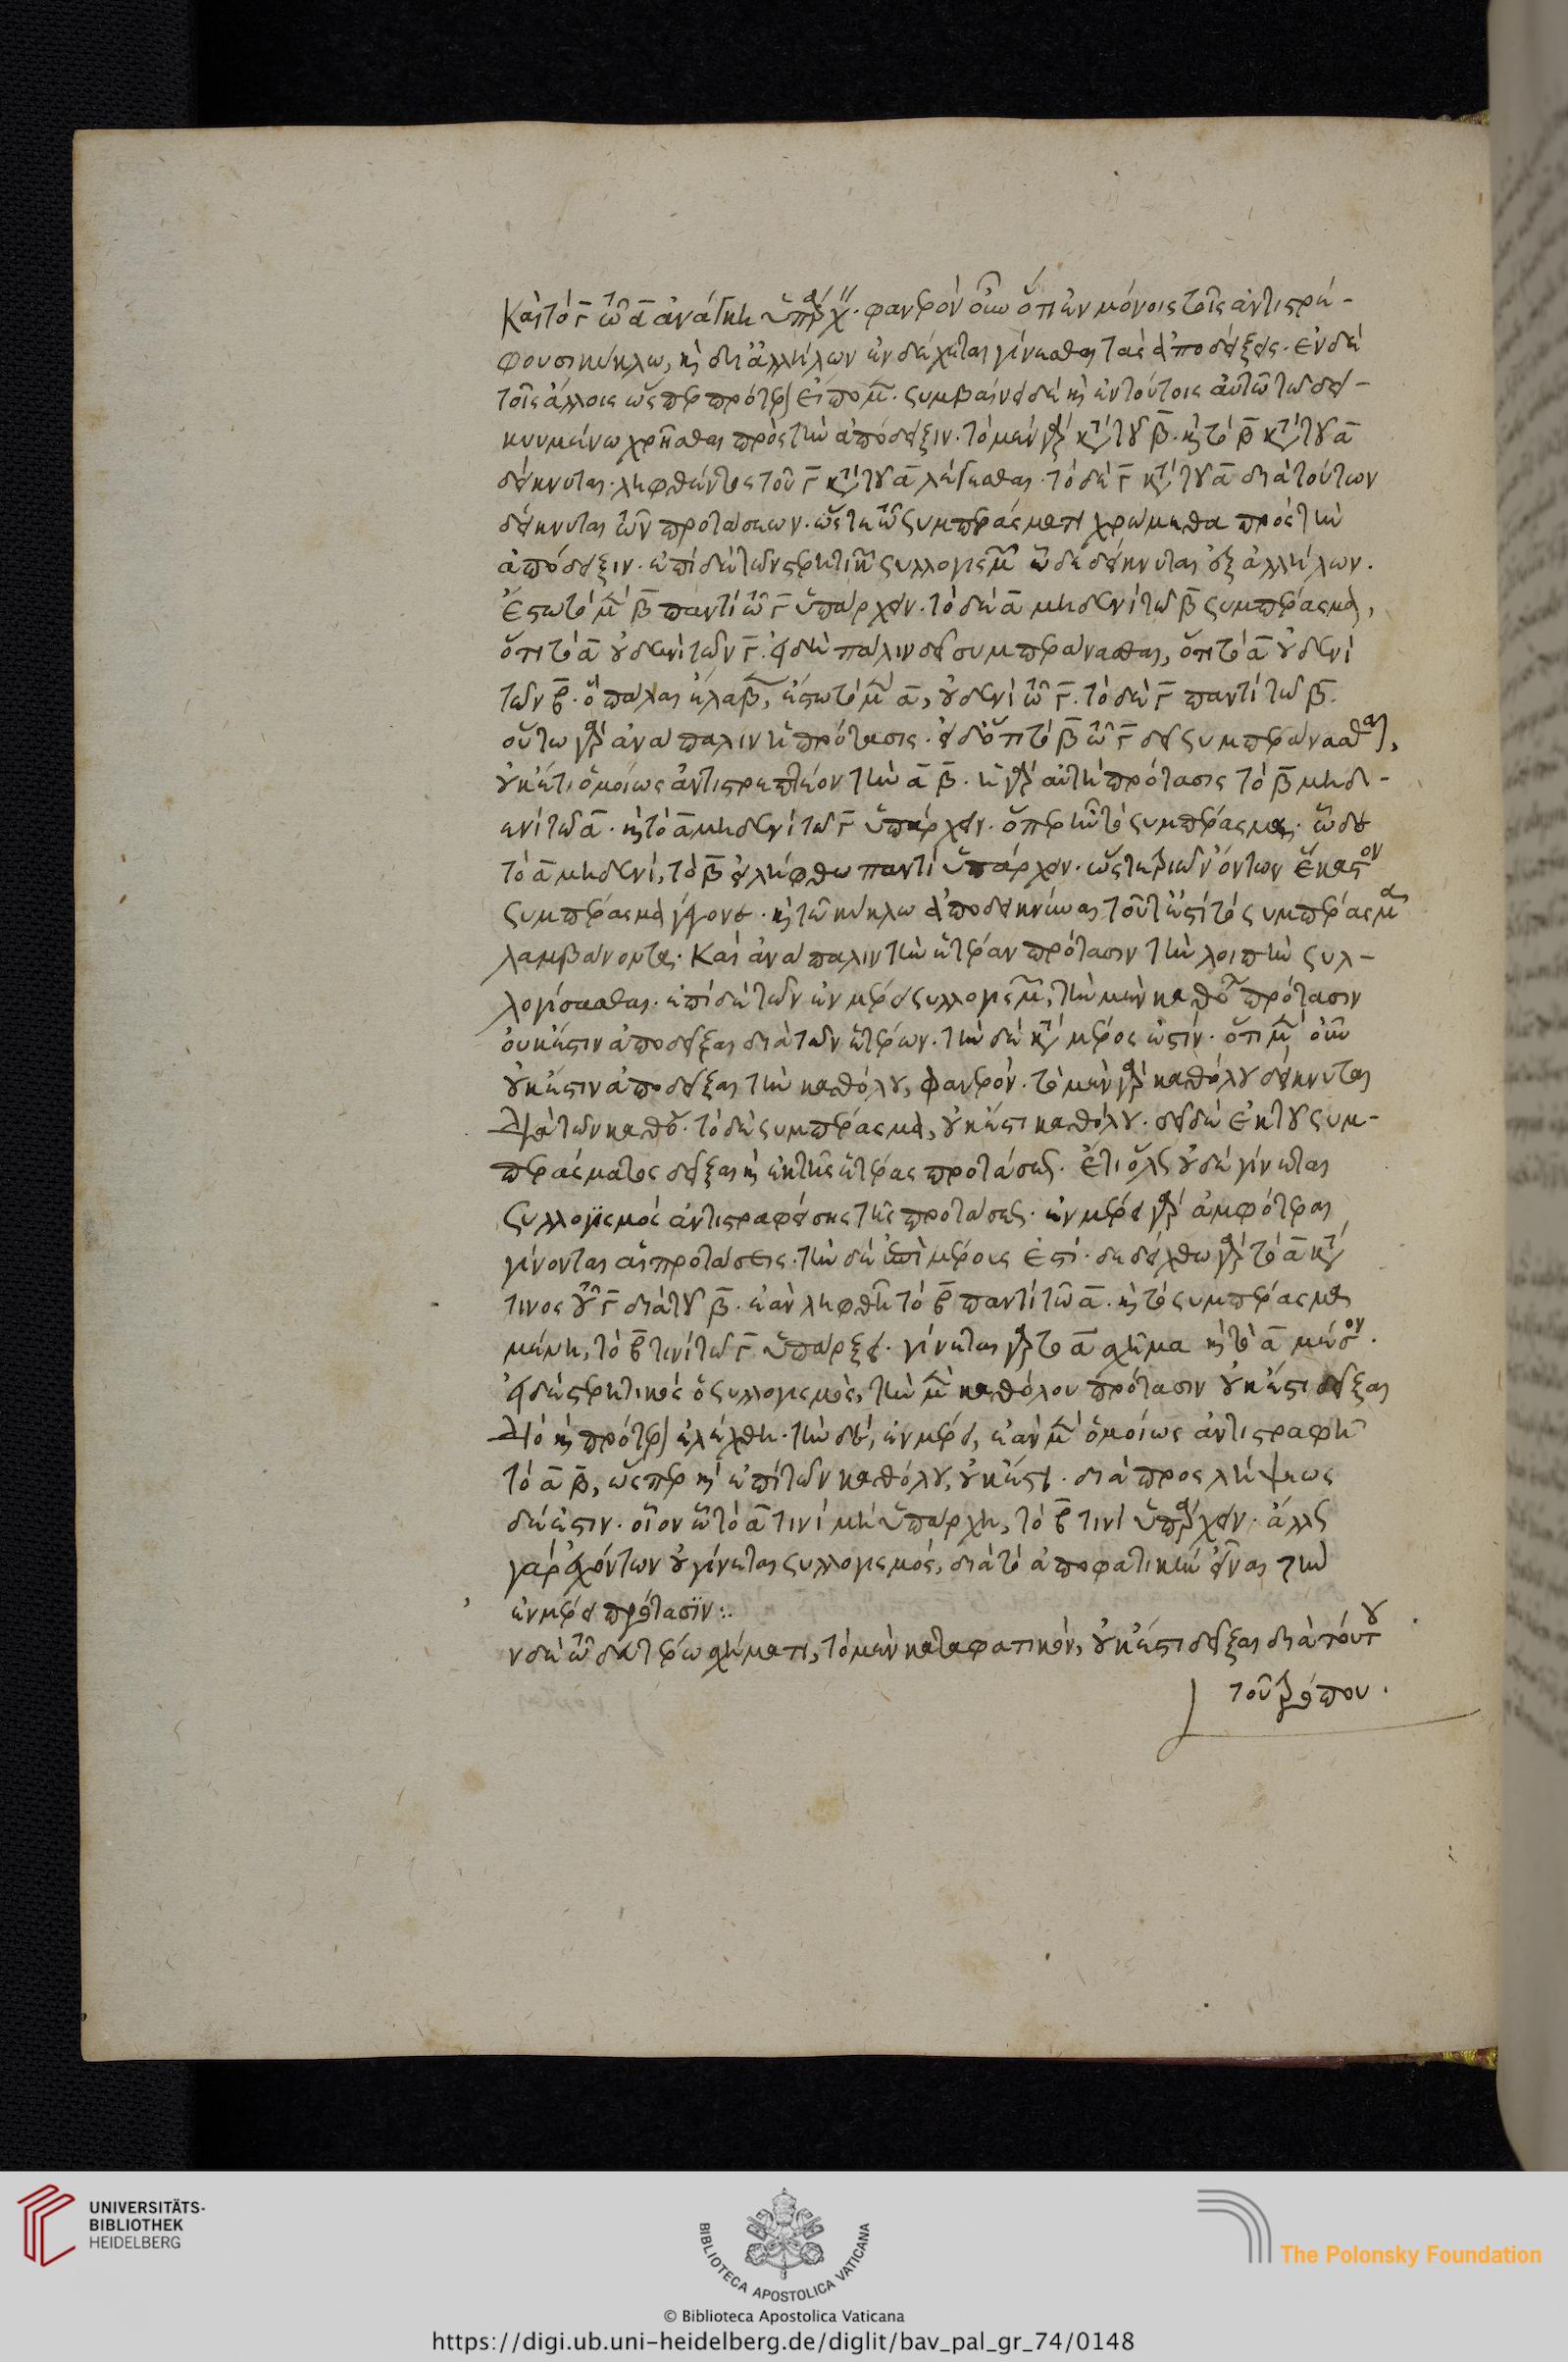 Καὶ τὸ γ̄ τῶ ᾱ ἀνάγκη ὑπάρχ. φανερὸν οὖν ὅτι ἐν μόνοις τοῖς ἀντιστρέ-
φουσι κύκλω, καὶ δι' ἀλλήλων ἐνδέχεται γίνεσθαι τὰς ἀποδείξεις. ἐν δὲ
τοῖς ἄλλοις ὡς πρότερον εἴπομεν. συμβαίνει δὲ καὶ ἐν τούτοις αὐτῶ τῶ δει-
κνυμένω χρῆσθαι πρὸς τὴν ἀπόδειξιν. τὸ μὲν γὰρ γ̄ κατὰ τοῦ β̄. καὶ τὸ β̄ κατὰ τοῦ ᾱ
δείκνυται. ληφθέντος τοῦ γ̄ κατὰ τοῦ ᾱ λέγεσθαι. τὸ δὲ γ̄ κατὰ τοῦ ᾱ διὰ τούτων
δείκνυται τῶν προτάσεων. ὥστε τῶ συμπεράσματι χρώμεθα πρὸς τὴν
ἀπόδειξιν. ἐπὶ δὲ τῶν στερητικῶν συλλογισμῶν ὧδε δείκνυται ἐξ ἀλλήλων.
Ἔστω τὸ μὲν β̄ παντὶ τῶ γ̄ ὑπάρχειν. τὸ δὲ ᾱ μηδενὶ τῶ β̄ συμπέρασμα,
ὅτι τὸ ᾱ οὐδενὶ τῶν γ̄. εἰ δὴ πάλιν δεῖ συμπεράνασθαι, ὅτι τὸ ᾱ οὐδενὶ
τῶν β̄. ὃ πάλαι ἔλαβεν, ἔστω τὸ μὲν ᾱ, οὐδενὶ τῶ γ̄. τὸ δὲ γ̄ παντὶ τῶ β̄.
οὕτω γὰρ ἀνάπαλιν ἡ πρότασις. εἰ δ' ὅτι τὸ β̄ τῶ γ̄ δεῖ συμπεράνασθαι,
οὐκέτι ὁμοίως ἀντιστρεπτέον τὴν ᾱ β̄. ἡ γὰρ αὐτὴ πρότασις τὸ β̄ μηδ-
ενὶ τῶ ᾱ. καὶ τὸ ᾱ μηδενὶ τῶ γ̄ ὑπάρχειν. ὅπερ ἦν τὸ συμπέρασμα. ὧ δὲ
τὸ ᾱ μηδενὶ, τὸ β̄ εἰλήφθω παντὶ ὑπάρχειν. ὥστε τριῶν ὄντων ἕκαστον
συμπέρασμα γέγονε. καὶ τῶ κύκλω ἀποδεικνύναι τοῦτ' ἔστι τὸ συμπέρασμα
λαμβάνοντας. Καὶ ἀνάπαλιν τὴν ἑτέραν πρότασιν τὴν λοιπὴν συλ-
λογίσασθαι. ἐπὶ δὲ τῶν ἐν μέρει συλλογισμῶν, τὴν μὲν καθόλου πρότασιν
οὐκ ἔστιν ἀποδεῖξαι διὰ τῶν ἑτέρων. τὴν δὲ κατὰ μέρος ἐστίν. ὅτι μὲν οὖν
οὐκ ἔστιν ἀποδεῖξαι τὴν καθόλου, φανερόν. τὸ μὲν γὰρ καθόλου δείκνυται
διὰ τῶν καθόλου. τὸ δὲ συμπέρασμα, οὐκ ἔστι καθόλου. δεῖ δὲ ἐκ τοῦ συμ-
περάσματος δεῖξαι καὶ ἐκ τῆς ἑτέρας προτάσεως. Ἔτι ὅλως οὐδὲ γίνεται
συλλογισμὸς ἀντιστραφείσης τῆς προτάσεως. ἐν μέρει γὰρ ἀμφότεραι
γίνονται αἱ προτάσεις. τὴν δὲ ἐπὶ μέρους ἔστι. δεδείχθω γὰρ τὸ ᾱ κατὰ
τινὸς τοῦ γ̄ διὰ τοῦ β̄. ἐὰν ληφθῆ τὸ β̄ παντὶ τῶ ᾱ. καὶ τὸ συμπέρασμα
μένη, τὸ β̄ τινὶ τῶ γ̄ ὑπάρξει. γίνεται γὰρ τὸ ᾱ σχῆμα καὶ τὸ ᾱ μέσον.
εἰ δὲ στερητικὸς ὁ συλλογισμὸς, τὴν μὲν καθόλου πρότασιν οὐκ ἔστι δεῖξαι
διὸ καὶ πρότερον ἐλέχθη. τὴν δὲ, ἐν μέρει, ἐὰν μὲν ὁμοίως ἀντιστραφῆ
τὸ ᾱ β̄, ὥσπερ καὶ ἐπὶ τῶν καθόλου, οὐκ ἔστι. διὰ προσλήψεως
δὲ ἔστιν. οἷον ᾧ τὸ ᾱ τινὶ μὴ ὑπάρχη, τὸ β̄ τινὶ ὑπάρχειν. ἄλλως
γὰρ ἐχόντων οὐ γίνεται συλλογισμὸς, διὰ τὸ ἀποφατικὴν εἶναι τὴν
ἐν μέρει πρότασιν:.
ν δὲ τῶ δευτέρω σχήματι, τὸ μὲν καταφατικὸν, οὐκ ἔστι δεῖξαι διὰ τούτου
τοῦ τρόπου.
UNIVERSITÄTS-
BIBLIOTHEK
HEIDELBERG
BIBLIOTECA APOSTOLICA VATICANA
The Polonsky Foundation
© Biblioteca Apostolica Vaticana
https://digi.ub.uni-heidelberg.de/diglit/bav_pal_gr_74/0148